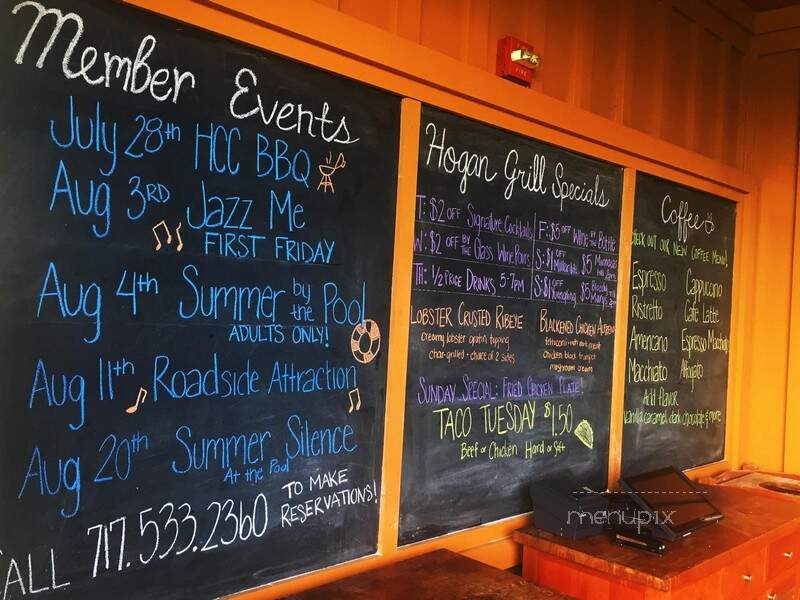 Member Events
July 28th HCC BBQ
Aug 3RD Jazz Me
FIRST FRIDAY
Aug 4th Summer by the Pool
ADULTS ONLY!
Aug 11th Roadside Attraction
Aug 20th Summer Silence
At the Pool
CALL 717.533.2360 TO MAKE RESERVATIONS!
Hogan Grill Specials
T: $2 OFF Signature Cocktails
W: $2 OFF BY THE Glass Wine Pours
TH: 1/2 PRICE DRINKS, 5-7PM
F: $5 OFF Wine by the Bottle
S: $1 OFF $5
S: $1 OFF $5
LOBSTER CRUSTED RIBEYE
creamy lobster gratin topping
char-grilled - choice of 2 sides
BLACKENED CHICKEN
chicken black trumpet
mushroom cream
SUNDAY SPECIAL: FRIED CHICKEN PLATE!
TACO TUESDAY $1.50
Beef or Chicken Hard or Soft
Coffee
CHECK OUT OUR NEW COFFEE MENU!
Espresso
Ristretto
Americano
Macchiato
Cappuccino
Café Latte
Espresso Macchiato
Affogato
Add Flavor
vanilla caramel dark chocolate & more
FIRE
menupix